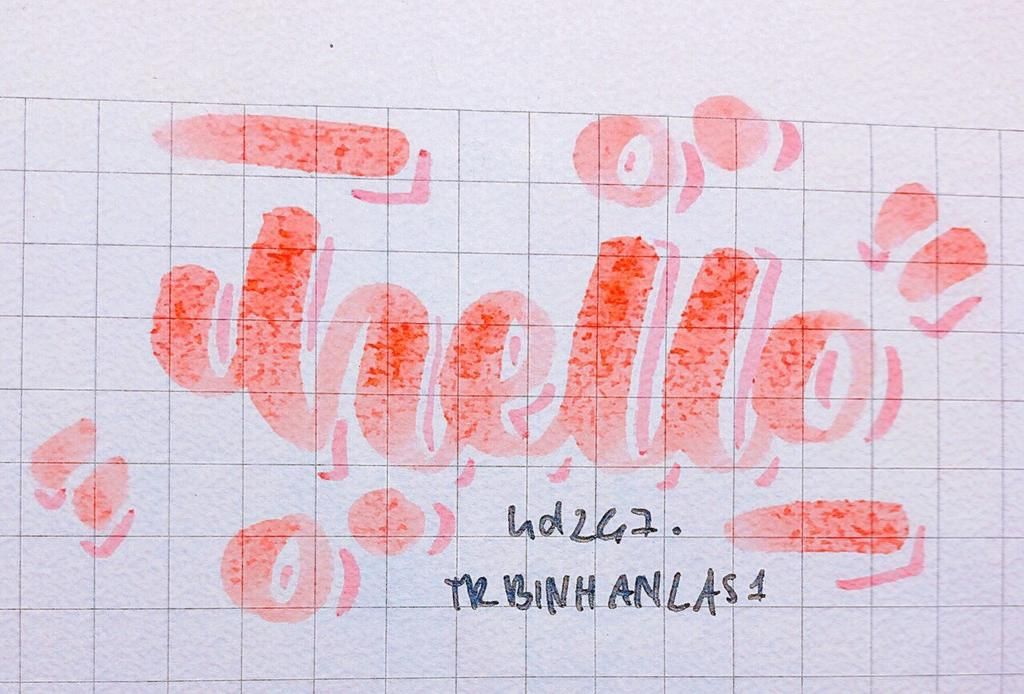 hello
hd2G7.
TRBINHANLAS1